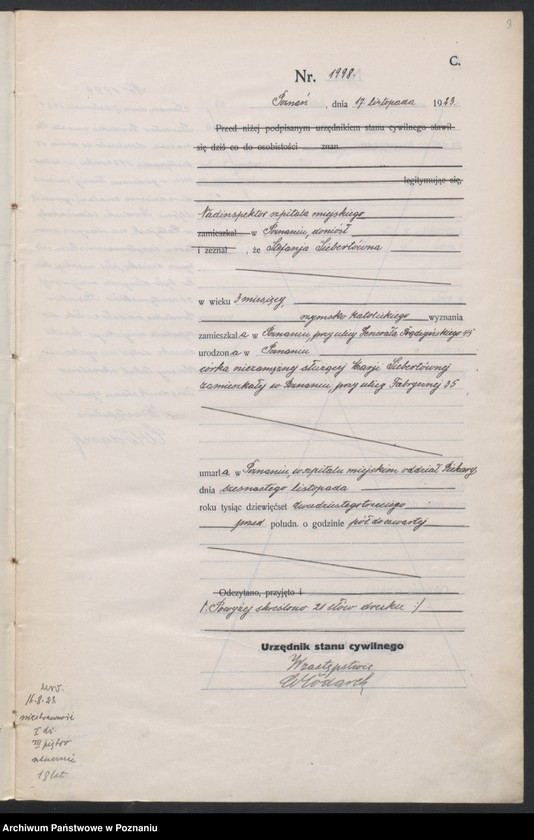 3
C.
Nr. 1998.
Poznań, dnia 17. listopada 1923.
Przed niżej podpisanym urzędnikiem stanu cywilnego stawił
się dziś co do osobistości znan
legitymując się,
Nadinspektor szpitala miejskiego
zamieszkał w Poznaniu, doniósł
i zeznał , że Stefanja Siebertówna
w wieku 3 miesięcy,
rzymsko katolickiego wyznania
zamieszkała w Poznaniu, przy ulicy Generała Prądzyńskiego 45
urodzona w Poznaniu
córka niezamężnej służącej Marji Siebertównej
zamieszkałej w Poznaniu, przy ulicy Fabrycznej 35
umarła w Poznaniu, w szpitalu miejskim oddział Piekary,
dnia szesnastego listopada
roku tysiąc dziewięćset dwudziestego trzeciego
przed połudn. o godzinie pół do czwartej
Odczytano, przyjęto i
/: Powyżej skreślono 21 słów druku :/
Urzędnik stanu cywilnego
W zastępstwie
Włodarek
urr.
16.8.23
niestrawność
I dz.
III piętro
Archiwum Państwowe w Poznaniu